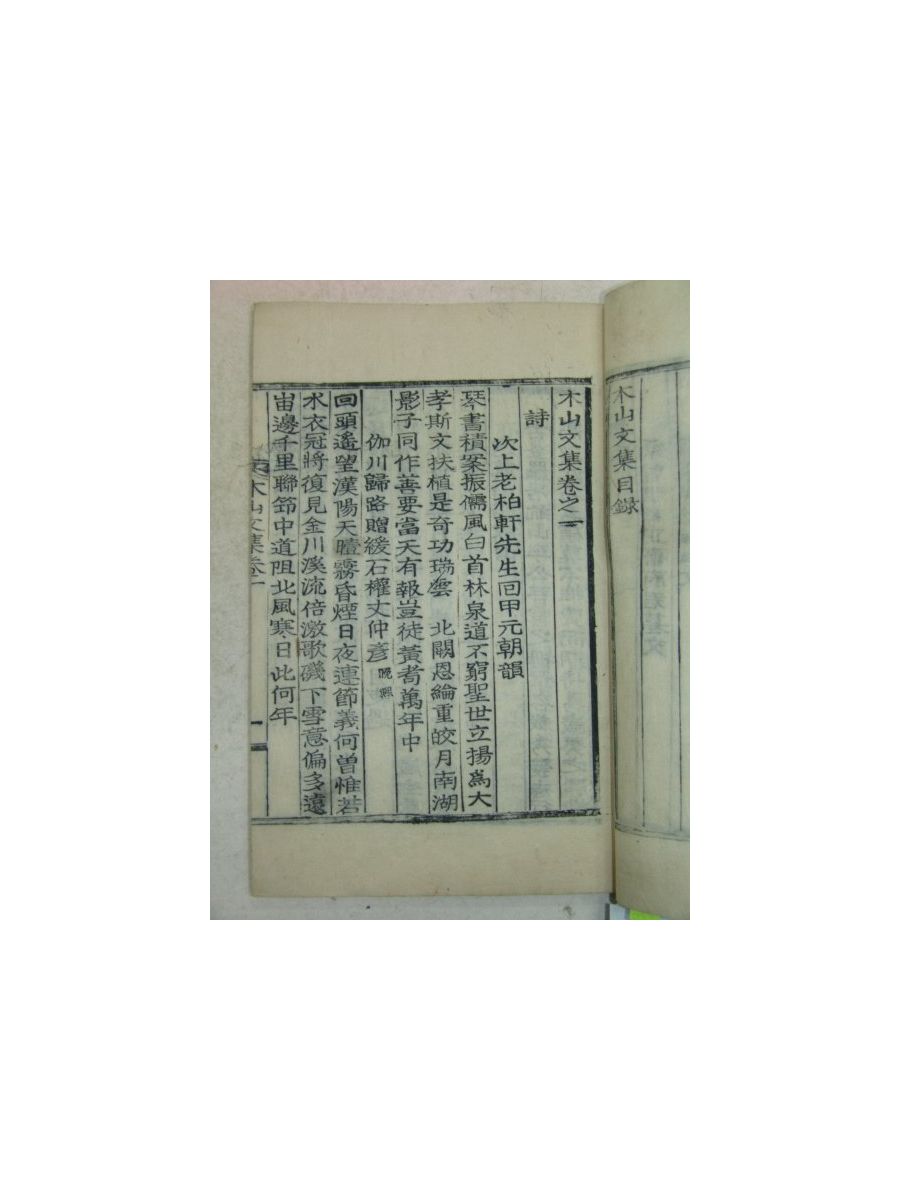 木山文集目錄
木山文集卷之一
詩
次上老柏軒先生回甲元朝韻
琴書積案振儒風白首林泉道不窮聖世立揚爲大
孝斯文扶植是奇功瑞雲 北闕恩綸重皎月南湖
影子同作善要當天有報豈徒黃耉萬年中
伽川歸路贈緩石權丈仲彥晩熙
回頭遙望漢陽天曀霧昏煙日夜連節義何曾惟若
水衣冠將復見金川溪流倍激歌磯下雪意偏多遠
峀邊千里聯筇中道阻北風寒日此何年
木山文集卷一
一